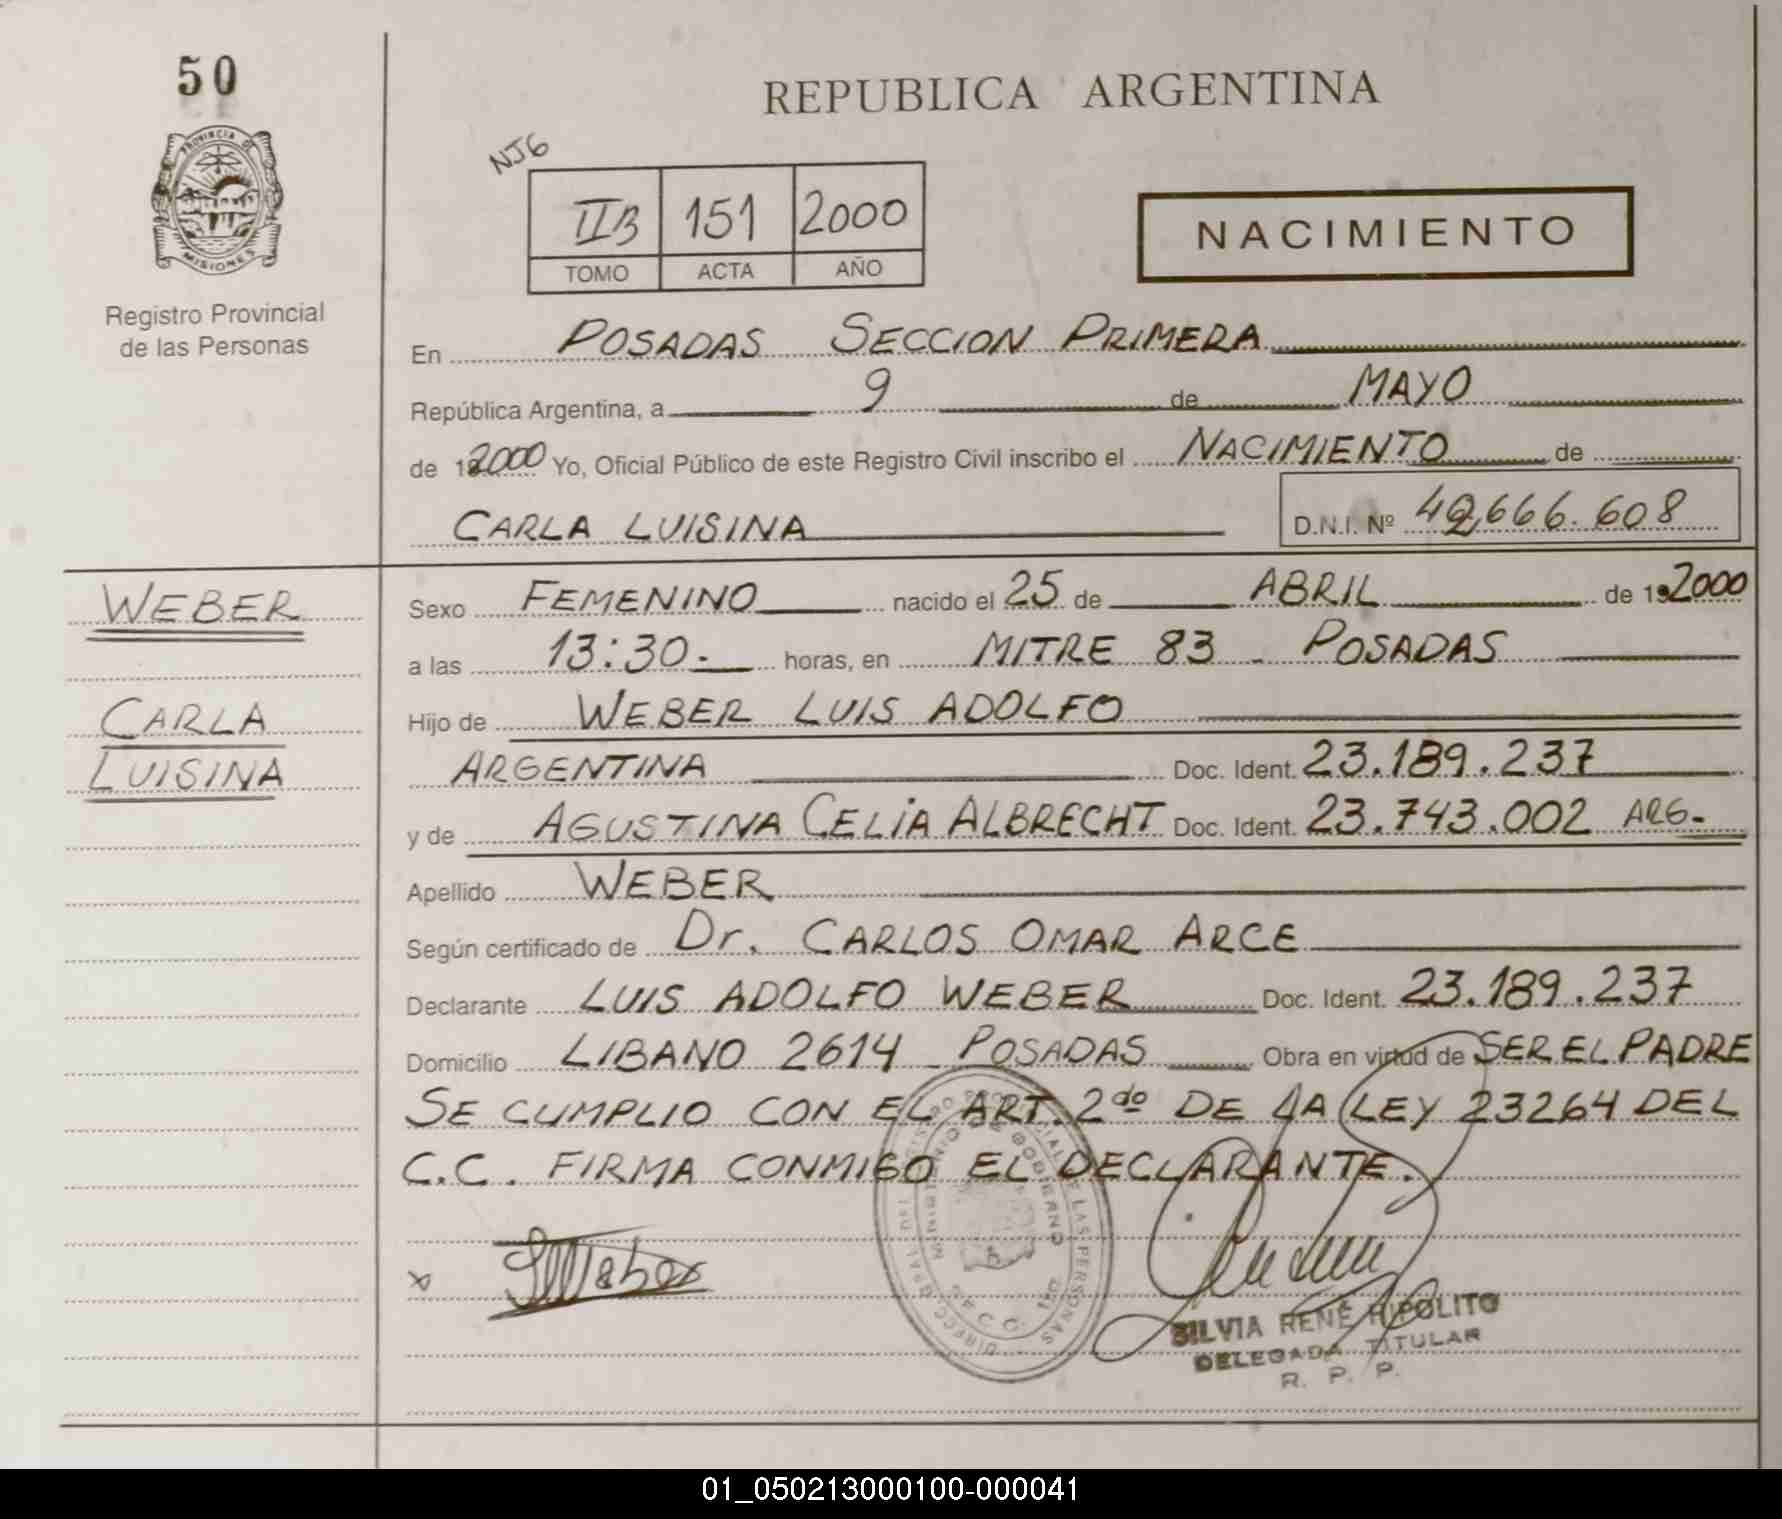 50
REPUBLICA ARGENTINA
NJ6
IIB 151 2000
TOMO ACTA AÑO
NACIMIENTO
PROVINCIA DE
MISIONES
Registro Provincial
de las Personas
En POSADAS SECCION PRIMERA
República Argentina, a 9 de MAYO
de 2000 Yo, Oficial Público de este Registro Civil inscribo el NACIMIENTO de
CARLA LUISINA D.N.I. Nº 42,666.608
WEBER
CARLA
LUISINA
Sexo FEMENINO nacido el 25 de ABRIL de 2000
a las 13:30.- horas, en MITRE 83 - POSADAS
Hijo de WEBER LUIS ADOLFO
ARGENTINA Doc. Ident. 23.189.237
y de AGUSTINA CELIA ALBRECHT Doc. Ident. 23.743.002 ARG.-
Apellido WEBER
Según certificado de Dr. CARLOS OMAR ARCE
Declarante LUIS ADOLFO WEBER Doc. Ident. 23.189.237
Domicilio LIBANO 2614 - POSADAS Obra en virtud de SER EL PADRE
SE CUMPLIO CON EL ART. 2do DE LA LEY 23264 DEL
C.C. FIRMA CONMIGO EL DECLARANTE.
x
SILVIA RENÉ HIPOLITO
DELEGADA TITULAR
R. P. P.
01_050213000100-000041